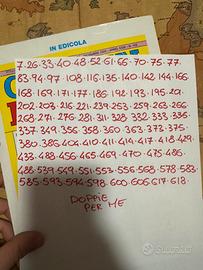 IN EDICOLA
7·26·33·40·48·52·61·66·70·75·77·
83·94·97·108·116·135·140·142·144·166·
168·169·171·177·186·192·193·195·201·
202·203·216·221·239·253·259·263·266
268·271·276·281·311·328·332·333·335·
337·349·356·358·360·363·373·375·
380·386·404·410·411·417·418·419·429·
433·488·456·465·469·470·475·486·
488·539·549·551·553·556·568·578·583·
585·593·594·598·600·606·617·618·
DOPPIE
PER ME
Subito.it